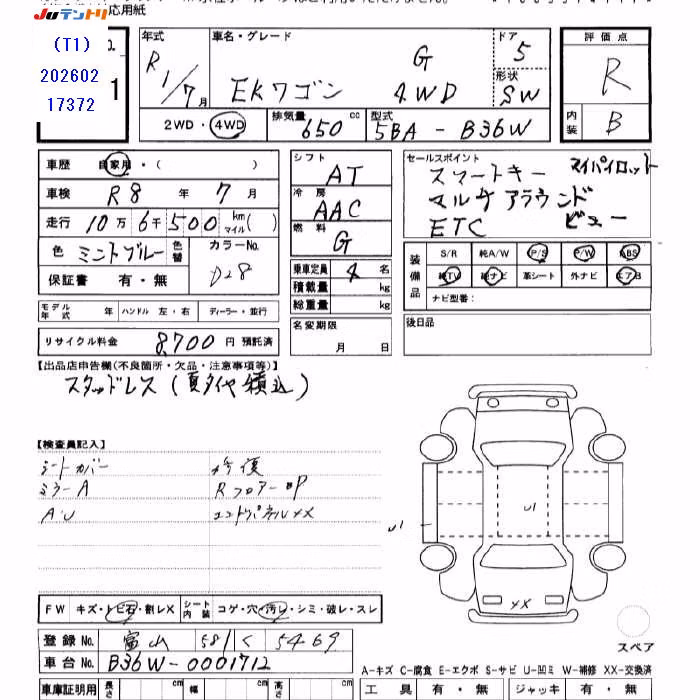 JUテントリ 応用紙
(T1)
202602
17372
No.
1
年式 R1/7月
車名・グレード G
EKワゴン 4WD
ドア 5
形状 SW
評価点 R
内装 B
2WD・4WD
排気量 650 cc
型式 5BA-B36W
車歴 自家用・( )
車検 R8年7月
走行 10万6千500 km マイル( )
色 ミントブルー 色替 カラーNo. D28
保証書 有・無
モデル年式 年 ハンドル 左・右 ディーラー・並行
リサイクル料金 8,700円 預託済
シフト AT
冷房 AAC
燃料 G
乗車定員 4名
積載量 kg
総重量 kg
名変期限 月 日
セールスポイント
スマートキー マイパイロット
マルチアラウンド
ETC ビュー
装備品 S/R 純A/W P/S P/W ABS
純TV 純ナビ 革シート 外ナビ エアB
ナビ型番:
後日品
【出品店申告欄(不良箇所・欠品・注意事項等)】
スタッドレス(夏タイヤ積込)
【検査員記入】
シートカバー 修復
ミラーA RフロアーP
A・U エンドパネルXX
U1
U1
XX
FW キズ・トビ石・割レX シート内装 コゲ・穴・汚レ・シミ・破レ・スレ
登録No. 富山 581 く 5469
車台No. B36W-0001712
車庫証明用 長さ cm 幅 cm 高さ cm
スペア
A-キズ C-腐食 E-エクボ S-サビ U-凹ミ W-補修 XX-交換済
工具 有・無 ジャッキ 有・無